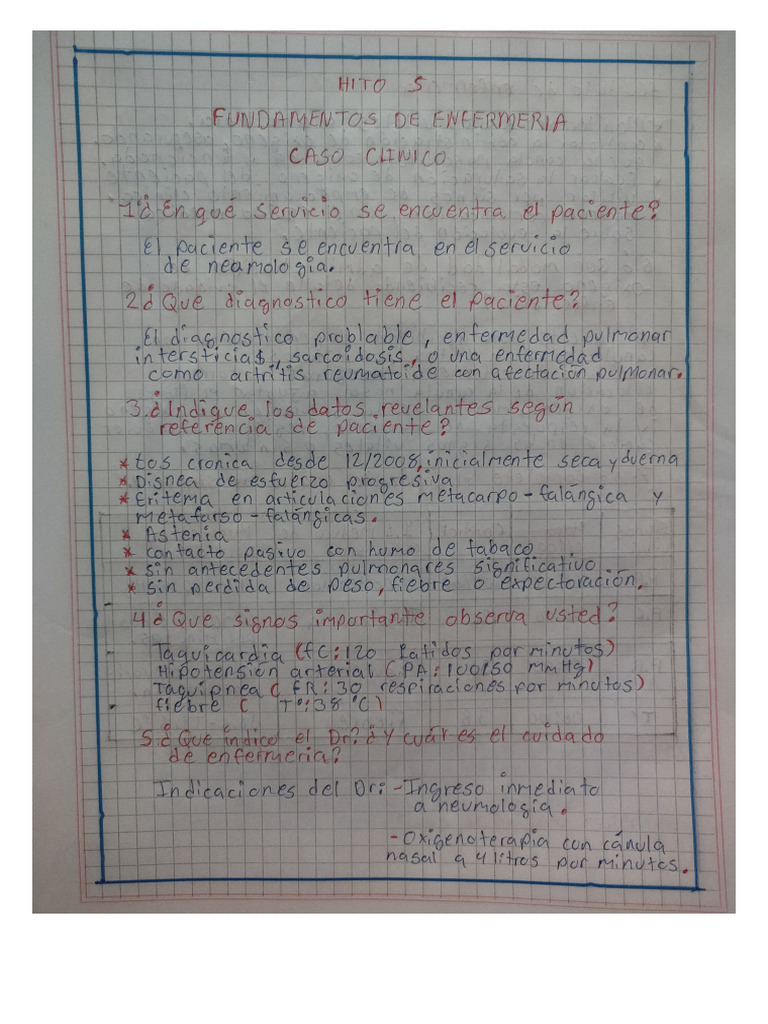 HITO 5
FUNDAMENTOS DE ENFERMERIA
CASO CLINICO
1¿ En qué servicio se encuentra el paciente?
El paciente se encuentra en el servicio
de neamologia.
2¿ Que diagnostico tiene el paciente?
El diagnostico problable, enfermedad pulmonar
intersticial, sarcoidosis, o una enfermedad
como artritis reumatoide con afectación pulmonar.
3.¿Indique los datos revelantes según
referencia de paciente?
* tos cronica desde 12/2008, inicialmente seca y duerna
* Disnea de esfuerzo progresiva
* Eritema en articulaciones metacarpo-falángica y
metafarso-falángicas.
* Astenia
* contacto pasivo con humo de tabaco
* sin antecedentes pulmonares significativo
* sin perdida de peso, fiebre o expectoración.
4¿ Que signos importante observa usted?
Taquicardia (fC:120 Latidos por minutos)
Hipotensión arterial (PA:100/50 mmHg)
Taquipnea ( FR:30 respiraciones por minutos)
fiebre ( T°:38 °C)
5.¿ Que indico el Dr? ¿Y cuál es el cuidado
de enfermeria?
Indicaciones del Dr: -Ingreso inmediato
a neumologia.
-Oxigenoterapia con cánula
nasal a 4 litros por minutos.